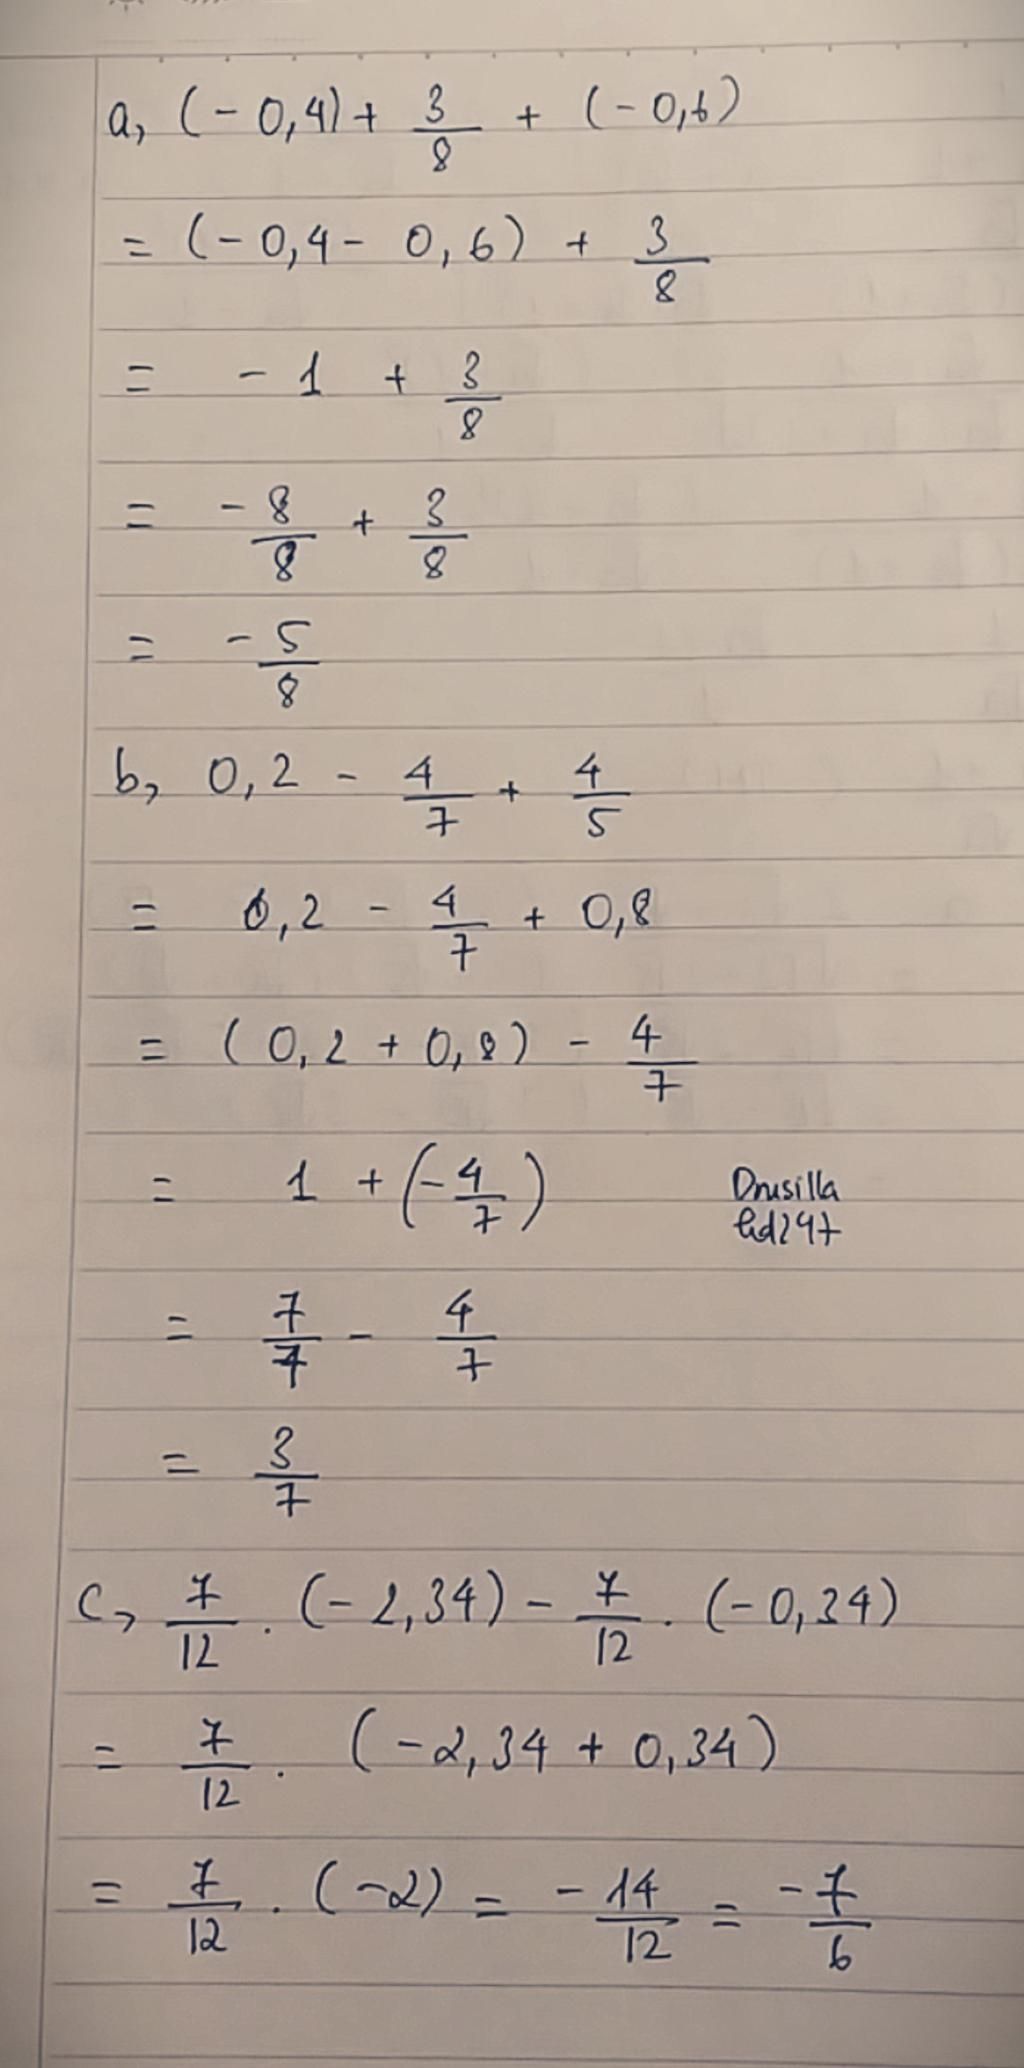 a, (-0,4) + 3/8 + (-0,6)
= (-0,4 - 0,6) + 3/8
= -1 + 3/8
= -8/8 + 3/8
= -5/8
b, 0,2 - 4/7 + 4/5
= 0,2 - 4/7 + 0,8
= (0,2 + 0,8) - 4/7
= 1 + (-4/7)
Drusilla
hd247
= 7/7 - 4/7
= 3/7
c, 7/12 . (-2,34) - 7/12 . (-0,34)
= 7/12 . (-2,34 + 0,34)
= 7/12 . (-2) = -14/12 = -7/6